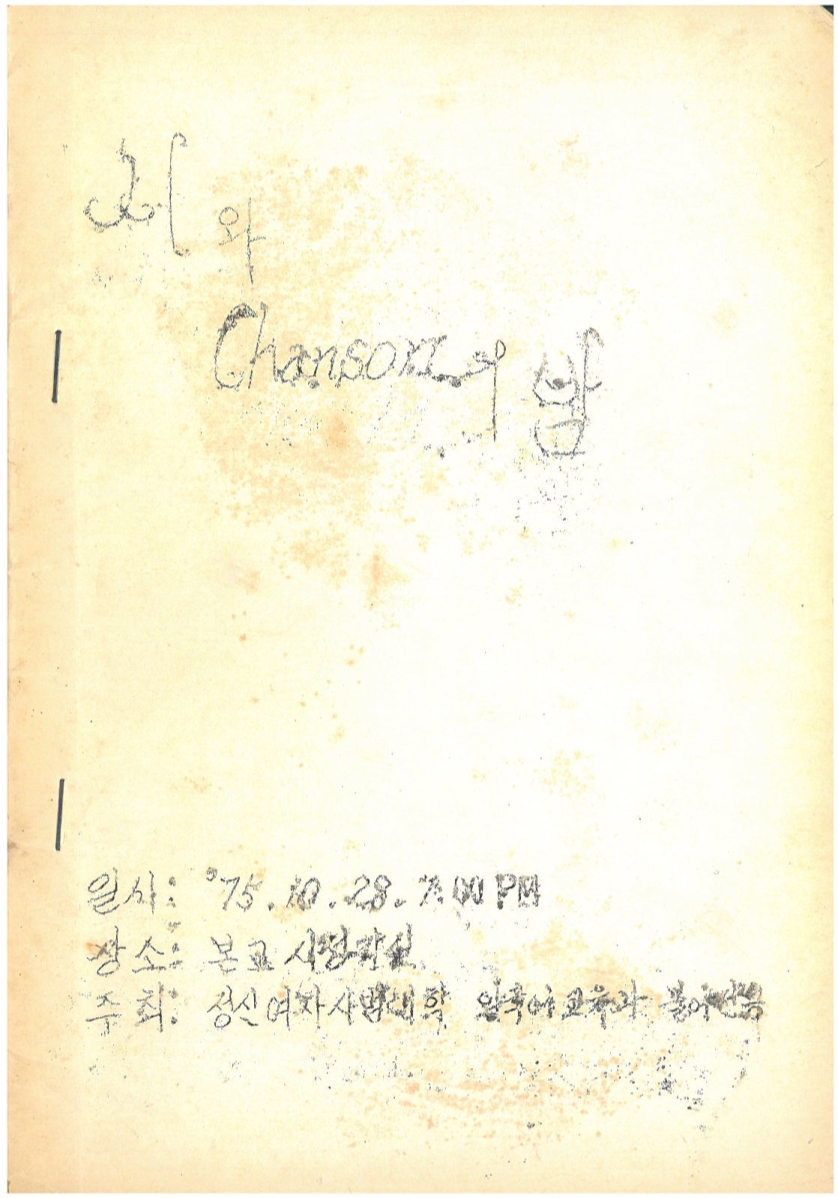 시와
Chanson의 밤
일시: '75.10.28. 7:00 PM
장소: 본교 시청각실
주최: 성신여자사범대학 외국어교육과 불어전공